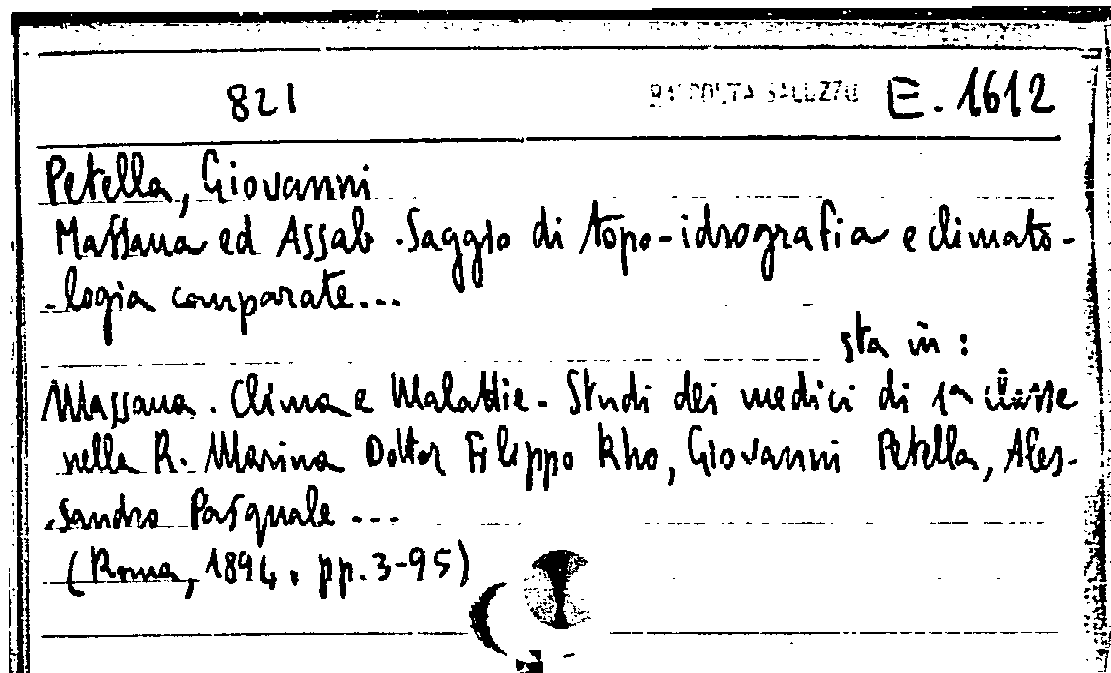 821 RACCOLTA SALUZZO E. 1612
Petella, Giovanni
Massaua ed Assab. Saggio di topo-idrografia e climato-
-logia comparate...
sta in:
Massaua. Clima e Malattie. Studi dei medici di 1ª classe
nella R. Marina Dottor Filippo Rho, Giovanni Petella, Ales-
sandro Pasquale...
(Roma, 1894. pp. 3-95)